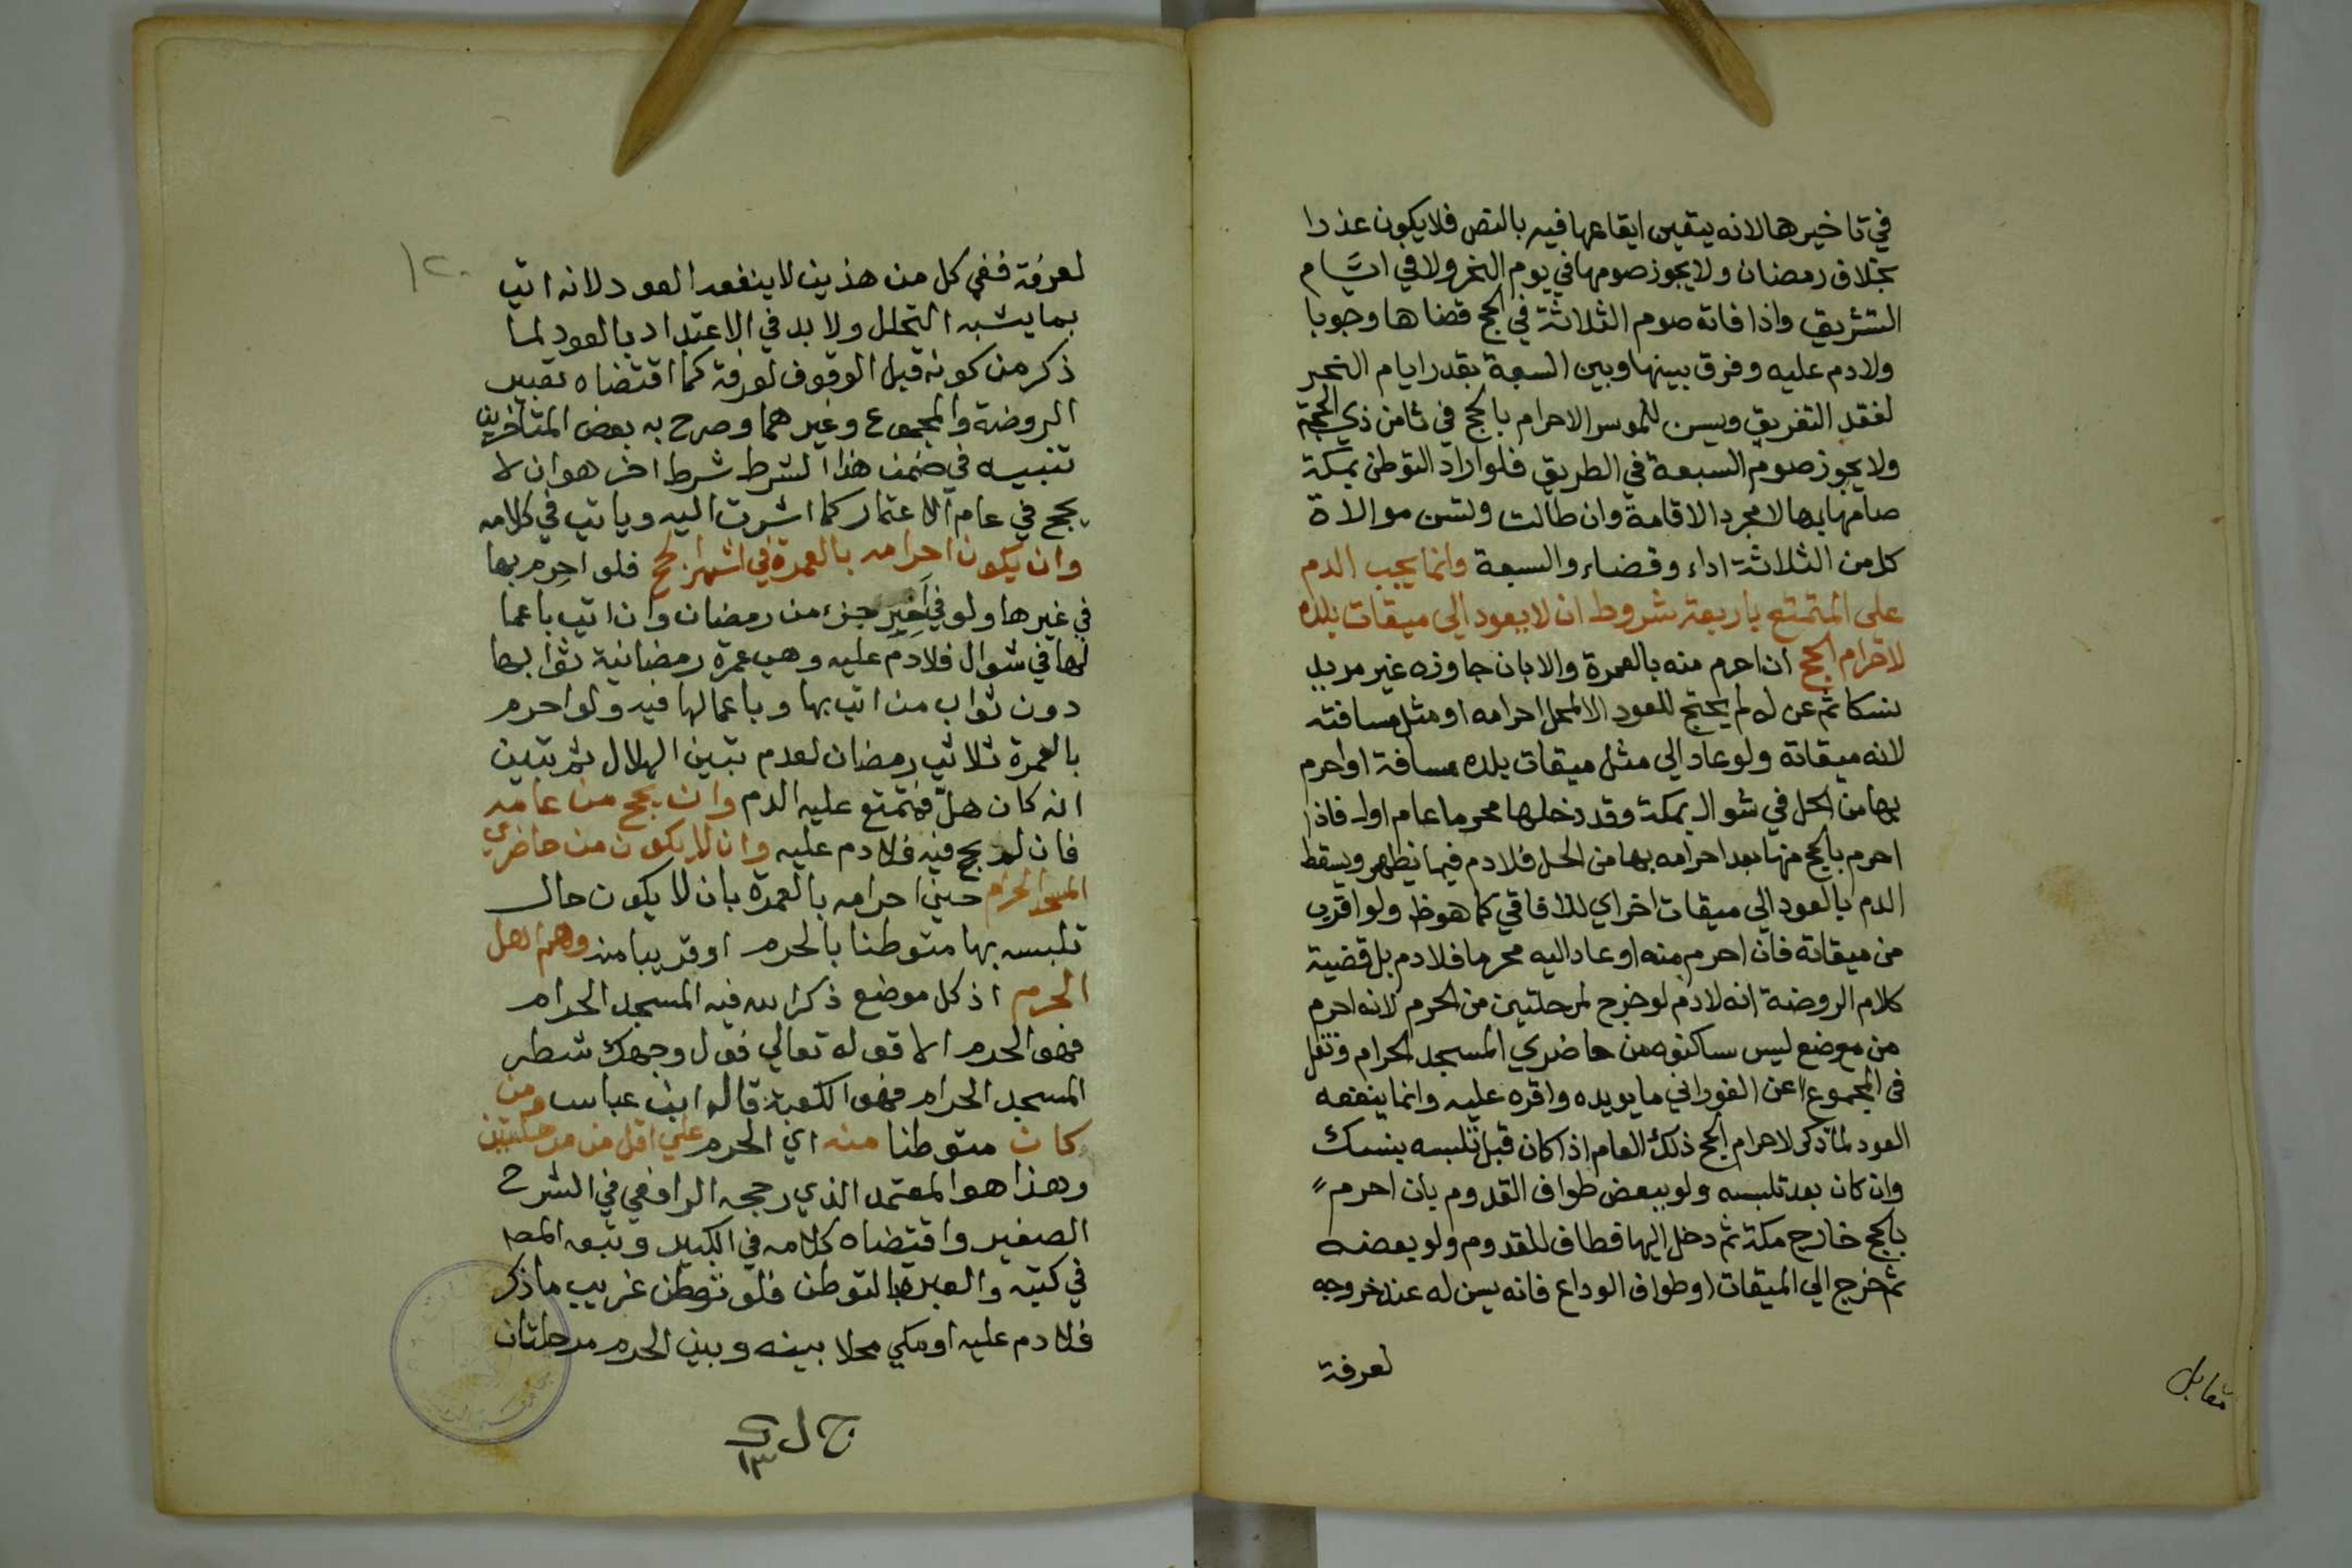 في تاخيرها لانه يتعين ايقاعها فيه بالنص فلا يكون عذرا
بخلاف رمضان ولا يجوز صومها في يوم النحر ولا في ايَّام
التشريق واذا فاته صوم الثلاثة في الحج قضاها وجوبا
ولا دم عليه وفرق بينها وبين السبعة بقدر ايام النحر
لفقد التفريق ويسن للموسر الاحرام بالحج في ثامن ذي الحجة
ولا يجوز صوم السبعة في الطريق فلو اراد التوطن بمكة
صامها بها لا مجرد الاقامة وان طالت وتسن موالاة
كل من الثلاثة اداء وقضاء والسبعة وانما يجب الدم
على المتمتع باربعة شروط ان لا يعود الى ميقات بلده
لاحرام الحج ان احرم منه بالعمرة والا بان جاوزه غير مريد
نسكا ثم عن له لم يحتج للعود الا لمحل احرامه او مثل مسافته
لانه ميقاته ولو عاد الى مثل ميقات بلده مسافة او احرم
بها من الحل في شوال بمكة وقد دخلها محرما عام اول فاذا
احرم بالحج منها بعد احرامه بها من الحل فلا دم فيما يظهر ويسقط
الدم بالعود الى ميقات اخر اي للافاقي كما هو ظ ولو اقرب
من ميقاته فان احرم منه او عاد اليه محرما فلا دم بل قضية
كلام الروضة انه لا دم لو خرج لمرحلتين من الحرم لانه احرم
من موضع ليس ساكنوه من حاضري المسجد الحرام ونقل
في المجموع عن الفوراني ما يويده واقره عليه وانما ينفعه
العود لما ذكر لاحرام الحج ذلك العام اذا كان قبل تلبسه بنسك
وان كان بعد تلبسه ولو ببعض طواف القدوم بان احرم
بالحج خارج مكة ثم دخل اليها فطاف للقدوم ولو بعضه
ثم خرج الي الميقات او طواف الوداع فانه يسن له عند خروجه
لعرفة
مقابل
١٢٠
لعرفة ففي كل من هذين لا ينفعه العود لانه اتي
بما يشبه التحلل ولا بد في الاعتداد بالعود لما
ذكر من كونه قبل الوقوف لعرفة كما اقتضاه تعبير
الروضة والمجموع وغيرهما وصرح به بعض المتاخرين
تنبيه في ضمن هذا الشرط شرط اخر هو ان لا
يحج في عام الاعتمار كما اشرت اليه وياتي في كلامه
وان يكون احرامه بالعمرة في اشهر الحج فلو احرم بها
في غيرها ولو في اخير جزء من رمضان وان اتي باعما
لها في شوال فلا دم عليه وهي عمرة رمضانية ثوابها
دون ثواب من اتي بها وباعمالها فيه ولو احرم
بالعمرة ثلاثي رمضان لعدم تبين الهلال ثم تبين
انه كان هل فتمتع عليه الدم وان يحج من عامه
فان لم يحج فيه فلا دم عليه وان لا يكون من حاضري
المسجد الحرام حين احرامه بالعمرة بان لا يكون حال
تلبسه بها متوطنا بالحرم او قريبا منه وهم اهل
الحرم اذ كل موضع ذكر الله فيه المسجد الحرام
فهو الحرم الا قوله تعالي فول وجهك شطر
المسجد الحرام فهو الكعبة قاله ابن عباس ومن
كان متوطنا منه اي الحرم علي اقل من مرحلتين
وهذا هو المعتمد الذي رجحه الرافعي في الشرح
الصغير واقتضاه كلامه في الكبير وتبعه المص
في كتبه والعبرة بالتوطن فلو توطن غريب ما ذكر
فلا دم عليه او مكي محلا بينه وبين الحرم مرحلتان